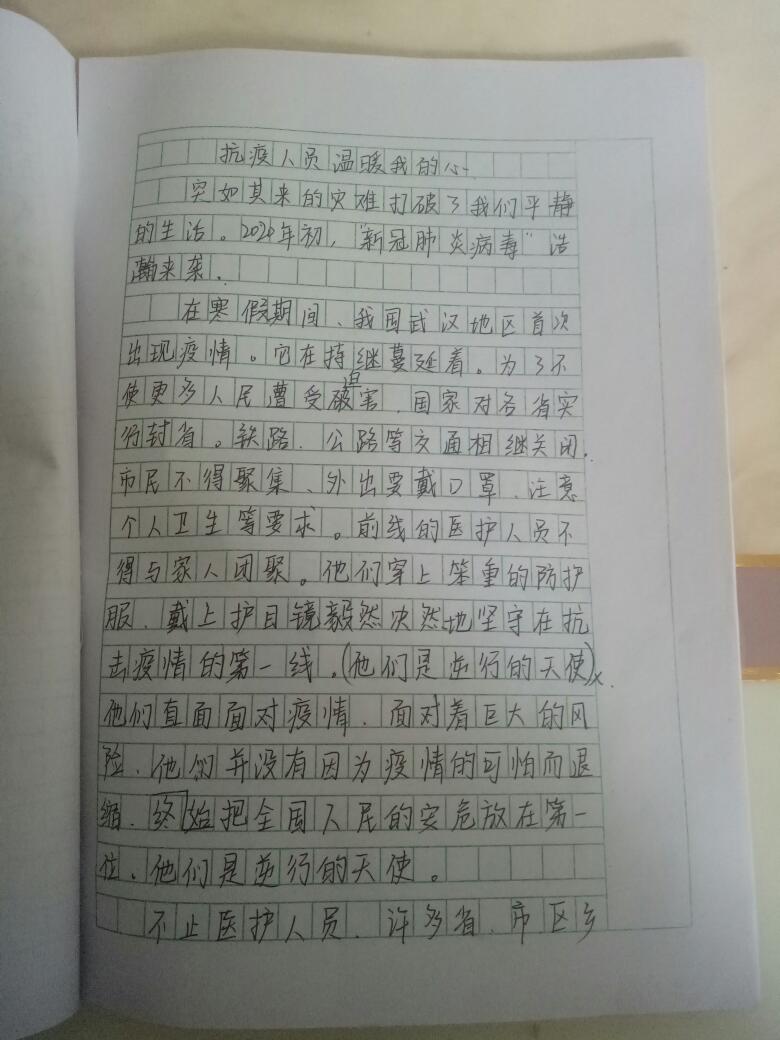 抗疫人员温暖我的心
突如其来的灾难打破了我们平静
的生活。2020年初，"新冠肺炎病毒"浩
瀚来袭.
在寒假期间、我国武汉地区首次
出现疫情。它在持继蔓延着。为了不
使更多人民遭受迫害、国家对各省实
行封省。铁路、公路等交面相继关闭.
市民不得聚集、外出要戴口罩、注意
个人卫生等要求。前线的医护人员不
得与家人团聚。他们穿上笨重的防护
服、戴上护目镜毅然决然地坚守在抗
击疫情的第一线.(他们是逆行的天使)
他们直面面对疫情、面对着巨大的风
险、他们并没有因为疫情的可怕而退
缩、终始把全国人民的安危放在第一
位、他们是逆行的天使。
不止医护人员、许多省、市区乡